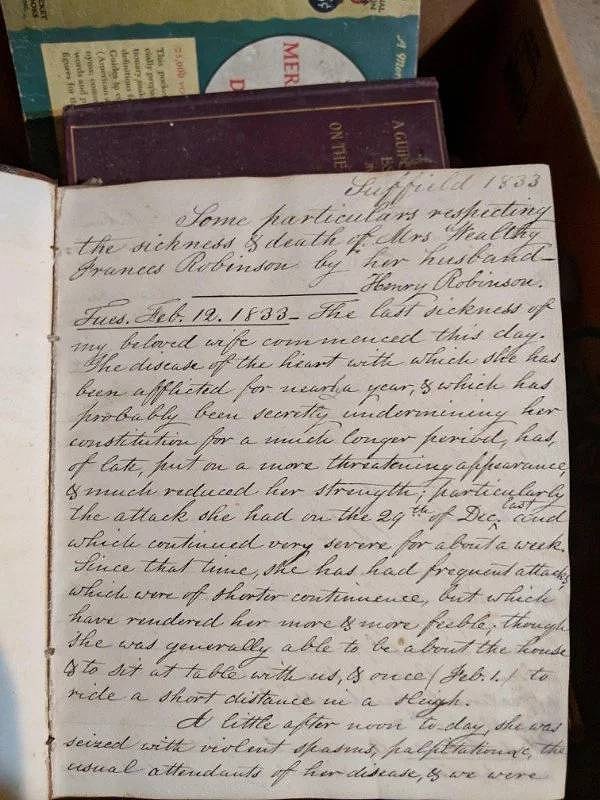 MER
D
A GUIDE
ON THE
Suffield 1833
Some particulars respecting
the sickness & death of Mrs Wealthy
Frances Robinson by her husband—
Henry Robinson.
Tues. Feb. 12. 1833 — The last sickness of
my beloved wife commenced this day.
The disease of the heart with which she has
been afflicted for nearly a year, & which has
probably been secretly undermining her
constitution for a much longer period, has,
of late, put on a more threatening appearance,
& much reduced her strength; particularly
the attack she had on the 29th of Dec. last and
which continued very severe for about a week.
Since that time, she has had frequent attacks,
which were of shorter continuence, but which
have rendered her more & more feeble; though
she was generally able to be about the house
& to sit at table with us, & once (Feb. 1.) to
ride a short distance in a sleigh.
A little after noon to day, she was
seized with violent spasms, palpitation &c, the
usual attendants of her disease, & we were